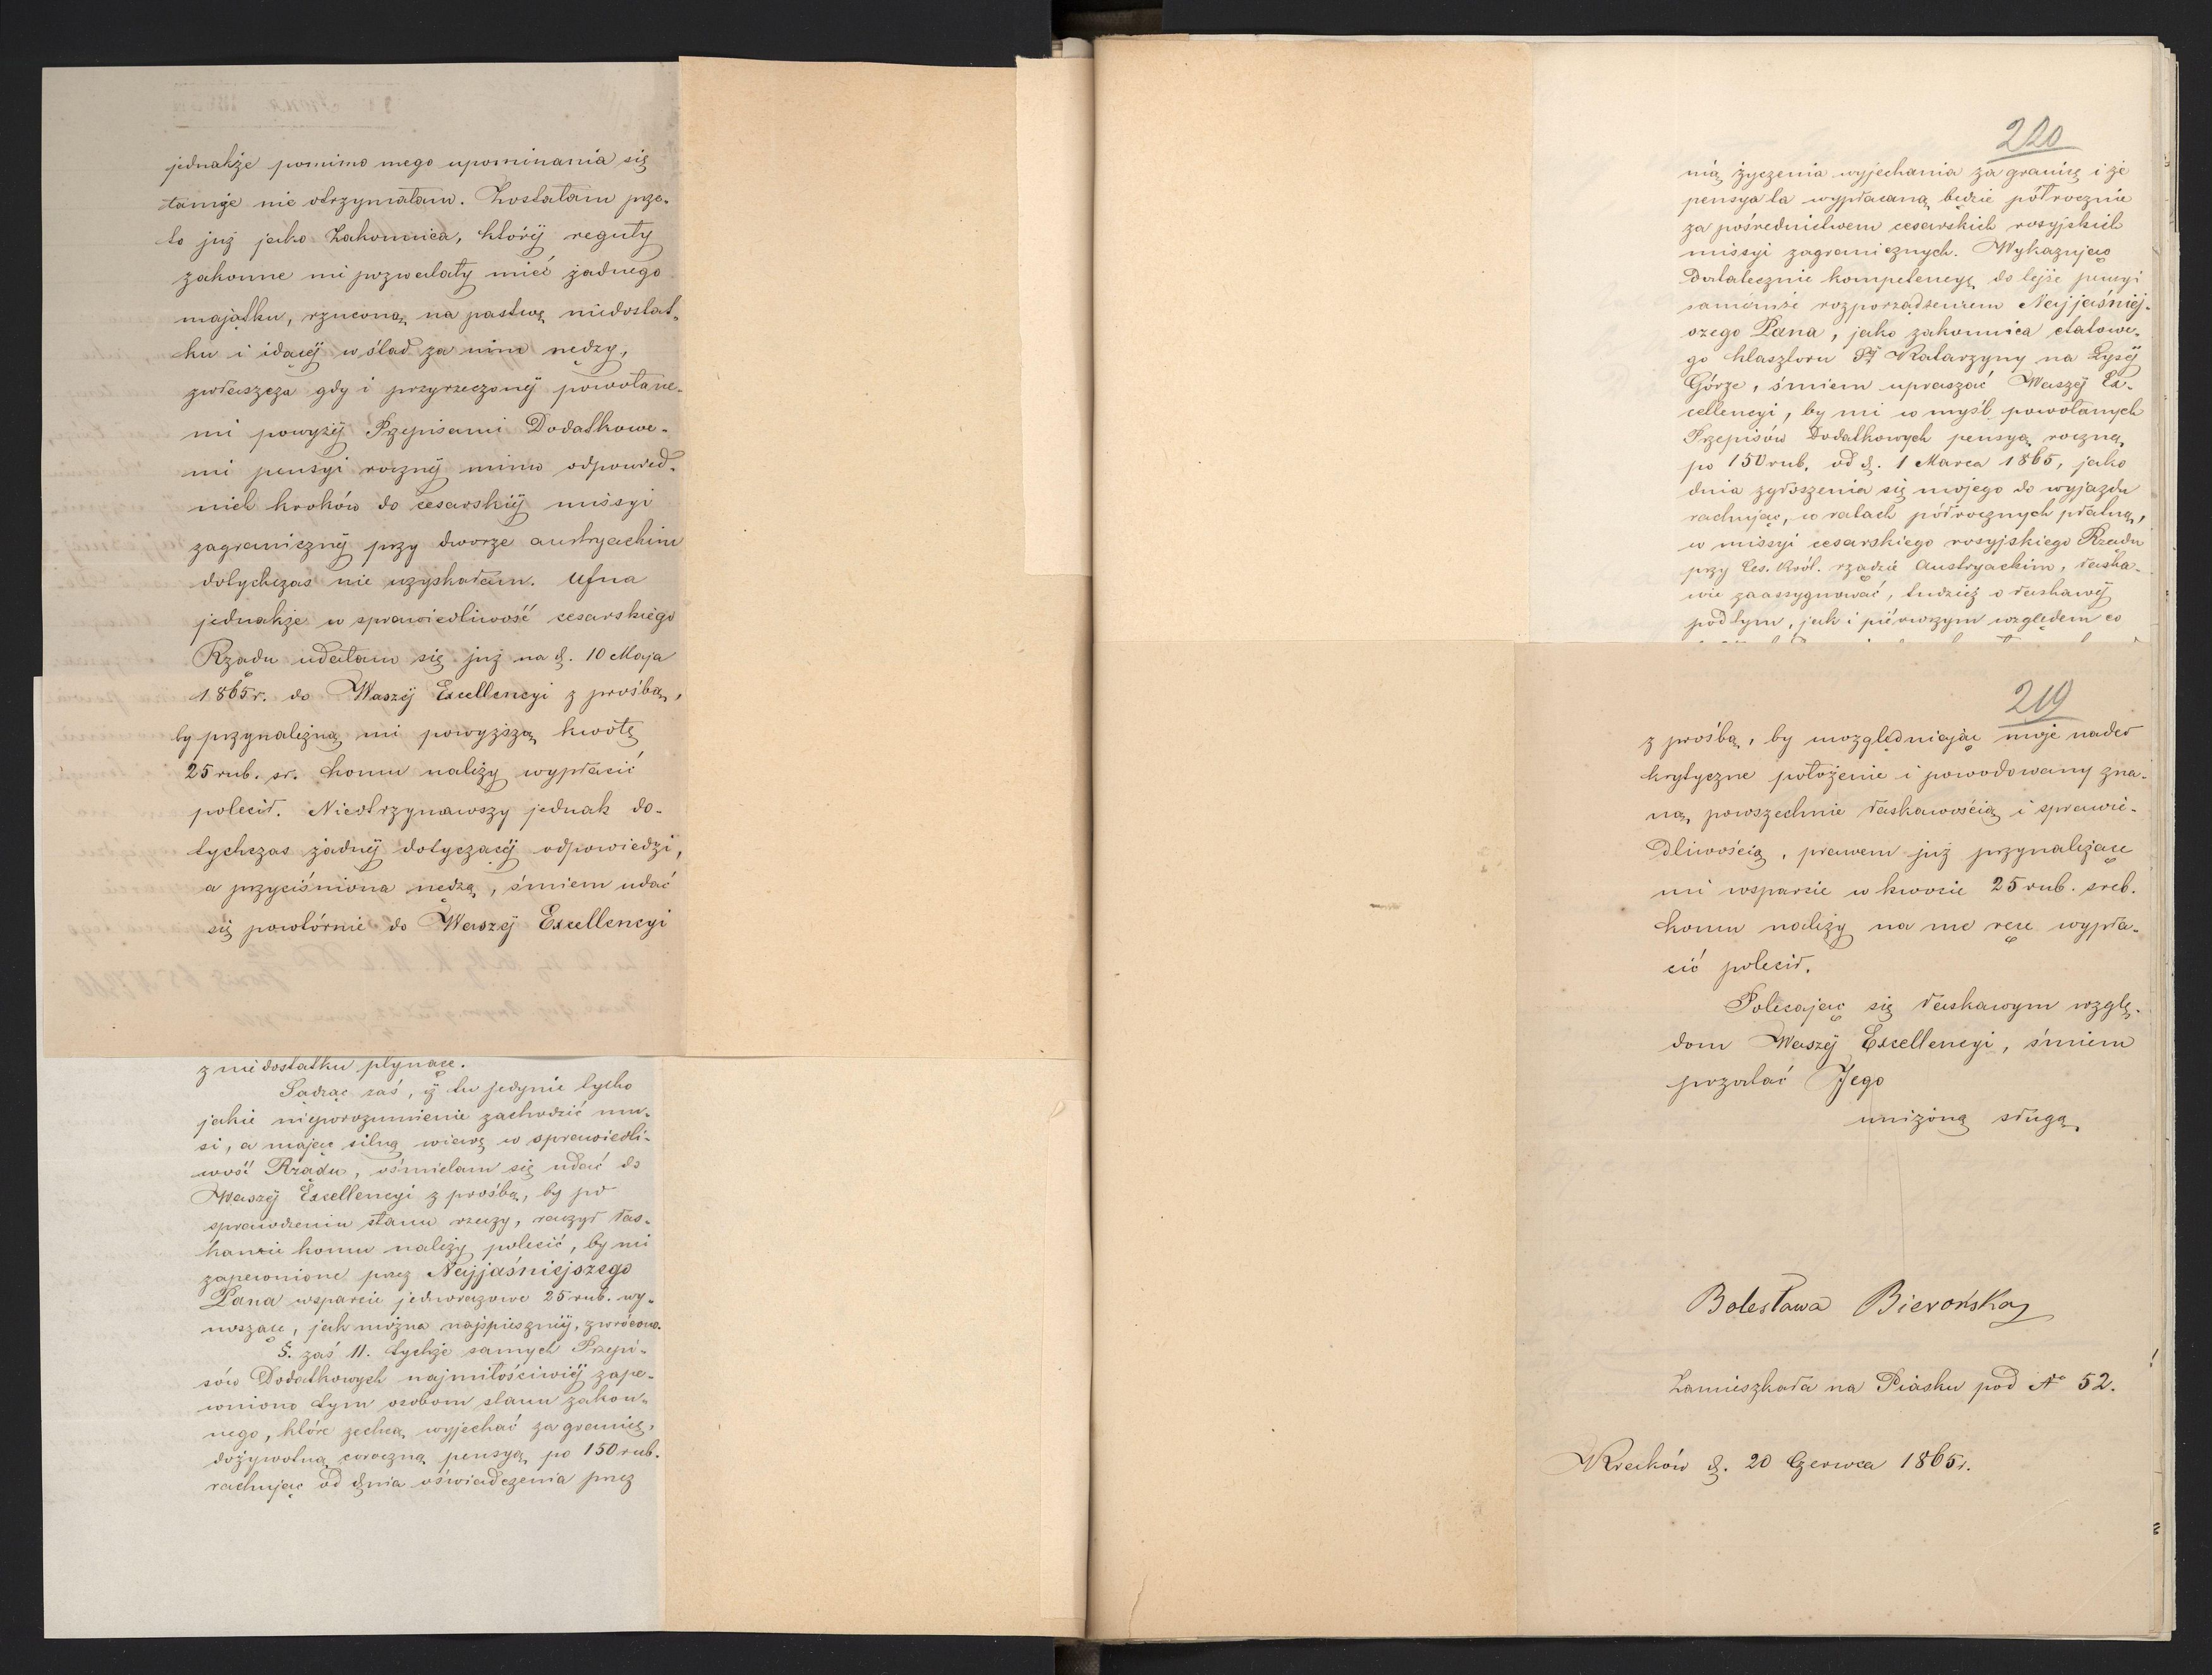 jednakże pomimo mego upominania się
tamże nie otrzymałam. Zostałam prze-
to już jako Zakonnica, któréj reguły
zakonne nie pozwalały mieć żadnego
majątku, rzuconą na pastwę niedostat-
ku i idącéj w ślad za nim nędzy,
zwłaszcza gdy i przyrzeczonéj powołane-
mi powyżéj Przepisami Dodatkowe-
mi pensyi rocznéj mimo odpowied-
nich kroków do cesarskiéj missyi
zagranicznéj przy dworze austryackim
dotychczas nie uzyskałam. Ufna
jednakże w sprawiedliwość cesarskiego
Rządu udałam się już na d. 10 Maja
1865 r. do Waszéj Excellencyi z prośbą,
by przynależną mi powyższą kwotę
25 rub. sr. komu należy wypłacić
polecił. Nieotrzymawszy jednak do-
tychczas żadnéj dotyczącéj odpowiedzi,
a przyciśniona nędzą, śmiem udać
się powtórnie do Waszéj Excellencyi
z niedostatku płynące.
Sądząc zaś, iż tu jedynie tylko
jakie nieporozumienie zachodzić mu-
si, a mając silną wiarę w sprawiedli-
wość Rządu, ośmielam się udać do
Waszéj Excellencyi z prośbą, by po
sprawdzeniu stanu rzeczy, raczył łas-
kawie komu należy polecić, by mi
zapewnione przez Najjaśniejszego
Pana wsparcie jednorazowe 25 rub. wy-
noszące, jak można najśpieszniéj, zwrócono.
§. zaś 11. tychże samych Przepi-
sów Dodatkowych najmiłościwiéj zape-
wniono tym osobom stanu zakon-
nego, które zechcą wyjechać za granicę,
dożywotną coroczną pensyą po 150 rub.
rachując od dnia oświadczenia przez
220
nią życzenia wyjechania za granicę i że
pensya ta wypłacaną będzie półrocznie
za pośrednictwem cesarskich rosyjskich
missyi zagranicznych. Wykazując
dostatecznie kompetencyę do tejże pensyi
samémże rozporządzeniem Najjaśniéj-
szego Pana, jako zakonnica etatowe-
go klasztoru Śtéj Katarzyny na Łyséj
Górze, śmiem upraszać Waszéj Ex-
cellencyi, by mi w myśl powołanych
Przepisów Dodatkowych pensyą roczną
po 150 rub. od d. 1 Marca 1865, jako
dnia zgłoszenia się mojego do wyjazdu
rachując, w ratach półrocznych płatną,
w missyi cesarskiego rosyjskiego Rządu
przy Ces. Król. rządzie austryackim, łaska-
wie zaassygnować, tudzież o łaskawéj
pod tym, jak i piérwszym względem co
219
z prośbą, by uwzględniając moje nader
krytyczne położenie i powodowany zna-
ną powszechnie łaskawością i sprawie-
dliwością, prawem już przynależące
mi wsparcie w kwocie 25 rub. sreb.
komu należy na me ręce wypła-
cić polecił.
Polecając się łaskawym wzglę-
dom Waszéj Excellencyi, śmiem
pozostać Jego
uniżoną sługą
Bolesława Bierońska
Zamieszkała na Piasku pod No 52.
Kraków d. 20 Czerwca 1865 r.